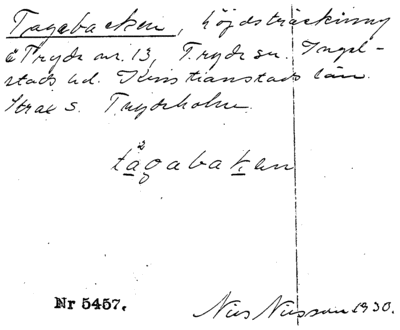 Tagebacken, höjdsträckning
å Tryde nr. 13, Tryde sn. Ingel-
stads hd. Kristianstads län.
Strax s. Trydeholm.
tågabakan
Nr 5457.
Nils Nilsson 1930.